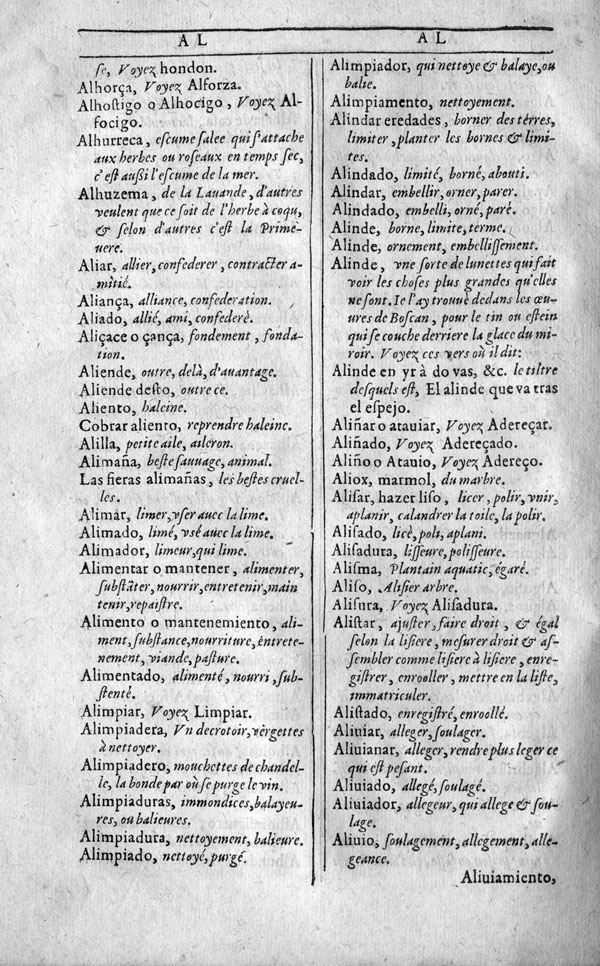 A L
ſe, Voyez hondon.
Alhorça, Voyez Alforza.
Alhoſtigo o Alhocigo, Voyez Al-
focigo.
Alhurreca, eſcume ſalee qui ſ'attache
aux herbes ou roſeaux en temps ſec,
c'eſt außi l'eſcume de la mer.
Alhuzema, de la Lauande, d'autres
veulent que ce ſoit de l'herbe à coqu,
& ſelon d'autres c'eſt la Prime-
uere.
Aliar, allier, confederer, contracter a-
mitié.
Aliança, alliance, confederation.
Aliado, allié, ami, confederè.
Aliçace o çança, fondement, fonda-
tion.
Aliende, outre, delà, d'auantage.
Aliende deſto, outre ce.
Aliento, haleine.
Cobrar aliento, reprendre haleine.
Alilla, petite aile, aileron.
Alimaña, beſte ſauuage, animal.
Las fieras alimañas, les beſtes cruel-
les.
Alimar, limer, vſer auec la lime.
Alimado, limé, vſé auec la lime.
Alimador, limeur, qui lime.
Alimentar o mantener, alimenter,
ſubſtāter, nourrir, entretenir, main
tenir, repaiſtre.
Alimento o mantenemiento, ali-
ment, ſubſtance, nourriture, entrete-
nement, viande, paſture.
Alimentado, alimenté, nourri, ſub-
ſtenté.
Alimpiar, Voyez Limpiar.
Alimpiadera, Vn decrotoir, vergettes
à nettoyer.
Alimpiadero, mouchettes de chandel-
le, la bonde par où ſe purge le vin.
Alimpiaduras, immondices, balayeu-
res, ou balieures.
Alimpiadura, nettoyement, balieure.
Alimpiado, nettoyé, purgé.
A L
Alimpiador, qui nettoye & balaye, ou
balie.
Alimpiamento, nettoyement.
Alindar eredades, borner des terres,
limiter, planter les bornes & limi-
tes.
Alindado, limité, borné, abouti.
Alindar, embellir, orner, parer.
Alindado, embelli, orné, paré.
Alinde, borne, limite, terme.
Alinde, ornement, embelliſſement.
Alinde, vne ſorte de lunettes qui fait
voir les choſes plus grandes qu'elles
ne ſont. Ie l'ay trouuè dedans les œu-
ures de Boſcan, pour le tin ou eſtein
qui ſe couche derriere la glace du mi-
roir. Voyez ces vers où il dit:
Alinde en yr à do vas, &c. le tiltre
deſquels eſt, El alinde que va tras
el eſpejo.
Aliñar o atauiar, Voyez Adereçar.
Aliñado, Voyez Adereçado.
Aliño o Atauio, Voyez Adereço.
Aliox, marmol, du marbre.
Aliſar, hazer liſo, licer, polir, vnir,
aplanir, calandrer la toile, la polir.
Aliſado, licè, poli, aplani.
Aliſadura, liſſeure, poliſſeure.
Aliſma, Plantain aquatic, égaré.
Aliſo, Aliſier arbre.
Aliſura, Voyez Aliſadura.
Aliſtar, ajuſter, faire droit, & égal
ſelon la liſiere, meſurer droit & aſ-
ſembler comme liſiere à liſiere, enre-
giſtrer, enrooller, mettre en la liſte,
immatriculer.
Aliſtado, enregiſtré, enroollé.
Aliuiar, alleger, ſoulager.
Aliuianar, alleger, rendre plus leger ce
qui eſt peſant.
Aliuiado, allegé, ſoulagé.
Aliuiador, allegeur, qui allege & ſou-
lage.
Aliuio, ſoulagement, allegement, alle-
geance.
Aliuiamiento,